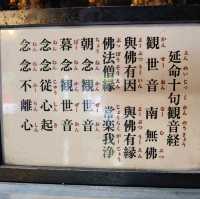 延命十句観音経
観世音 南無佛
與佛有因 與佛有縁
佛法僧縁 常楽我浄
朝念観世音
暮念観世音
念念從心起
念念不離心